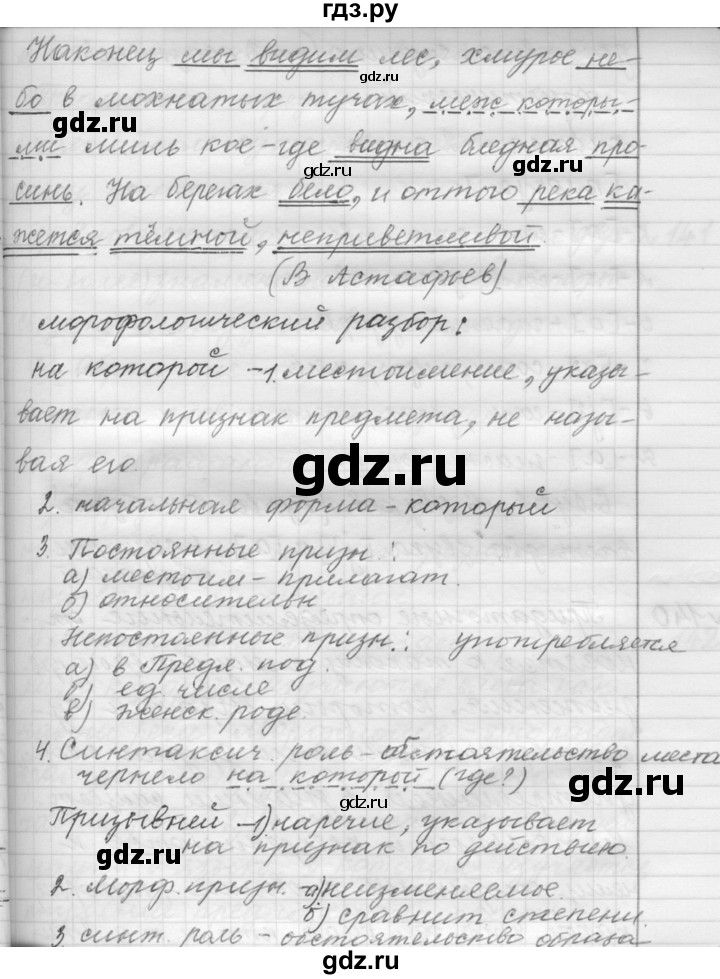 гдз.ру
Наконец мы видим лес, хмурое не-
gdz.ru
бо в мохнатых тучах, меж которы-
gdz.ru
gdz.ru
ми лишь кое-где видна бледная про-
gdz.ru
синь. На берегах бело, и оттого река ка-
gdz.ru
жется тёмной, неприветливой.
gdz.ru
(В Астафьев)
морофологический разбор:
gdz.ru
на которой - 1. местоимение, указы-
вает на признак предмета, не назы-
вая его.
gdz.ru
2. начальная форма - который
3. Постоянные призн:
а) местоим - прилагат.
б) относительн
Непостоянные призн: употребляется
а) в Предл. пад.
б) ед. числе
в) женск. роде.
4. Синтаксич. роль - обстоятельство места
чернело на которой (где?)
gdz.ru
gdz.ru
Призывней - 1) наречие, указывает
на признак по действию.
gdz.ru
2. Морф. призн. - а) неизменяемое.
б) сравнит степени.
gdz.ru
3. синт. роль - обстоятельство образа